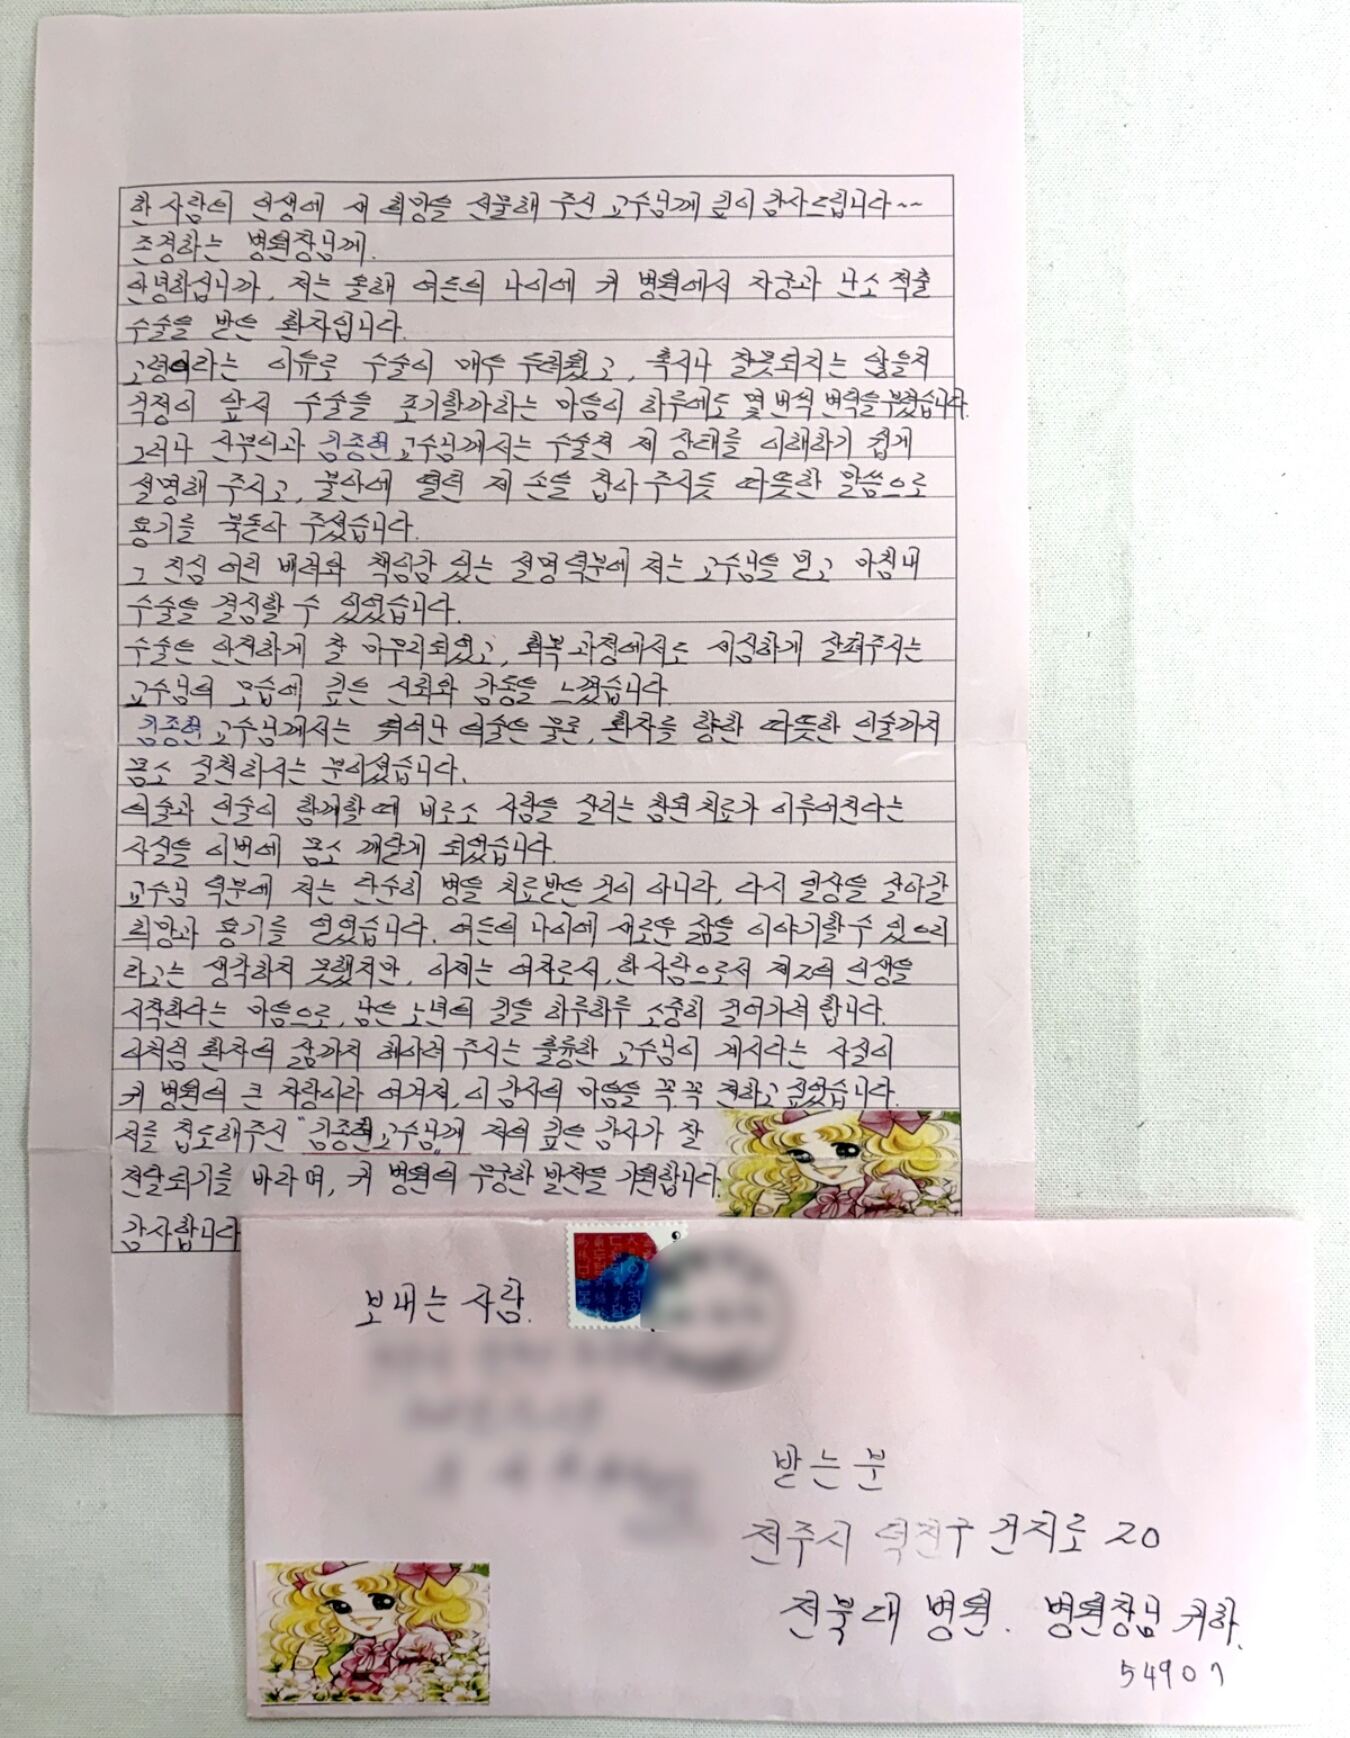 한 사람의 인생에 새 희망을 선물해 주신 교수님께 깊이 감사드립니다~~
존경하는 병원장님께.
안녕하십니까, 저는 올해 여든의 나이에 귀 병원에서 자궁과 난소 적출
수술을 받은 환자입니다.
고령이라는 이유로 수술이 매우 두려웠고, 혹시나 잘못되지는 않을지
걱정이 앞서 수술을 포기할까하는 마음이 하루에도 몇 번씩 변덕을 부렸습니다.
그러나 산부인과 김종현 교수님께서는 수술전 제 상태를 이해하기 쉽게
설명해 주시고, 불안에 떨던 제 손을 잡아 주시듯 따뜻한 말씀으로
용기를 북돋아 주셨습니다.
그 진심 어린 배려와 책임감 있는 설명 덕분에 저는 교수님을 믿고 마침내
수술을 결심할 수 있었습니다.
수술은 안전하게 잘 마무리되었고, 회복 과정에서도 세심하게 살펴주시는
교수님의 모습에 깊은 신뢰와 감동을 느꼈습니다.
김종현 교수님께서는 뛰어난 의술은 물론, 환자를 향한 따뜻한 인술까지
몸소 실천하시는 분이셨습니다.
의술과 인술이 함께할 때 비로소 사람을 살리는 참된 치료가 이루어진다는
사실을 이번에 몸소 깨닫게 되었습니다.
교수님 덕분에 저는 단순히 병을 치료받은 것이 아니라, 다시 일상을 살아갈
희망과 용기를 얻었습니다. 여든의 나이에 새로운 삶을 이야기할 수 있으리
라고는 생각하지 못했지만, 이제는 여자로서, 한 사람으로서 제2의 인생을
시작한다는 마음으로, 남은 노년의 길을 하루하루 소중히 걸어가려 합니다.
이처럼 환자의 삶까지 헤아려 주시는 훌륭한 교수님이 계시다는 사실이
귀 병원의 큰 자랑이라 여겨져, 이 감사의 마음을 꼭.꼭 전하고 싶었습니다.
저를 집도해주신 "김종현 교수님"께 저의 깊은 감사가 잘
전달되기를 바라며, 귀 병원의 무궁한 발전을 기원합니다.
감사합니다
보내는 사람.
받는 분
전주시 덕진구 건지로 20
전북대 병원. 병원장님 귀하.
54907